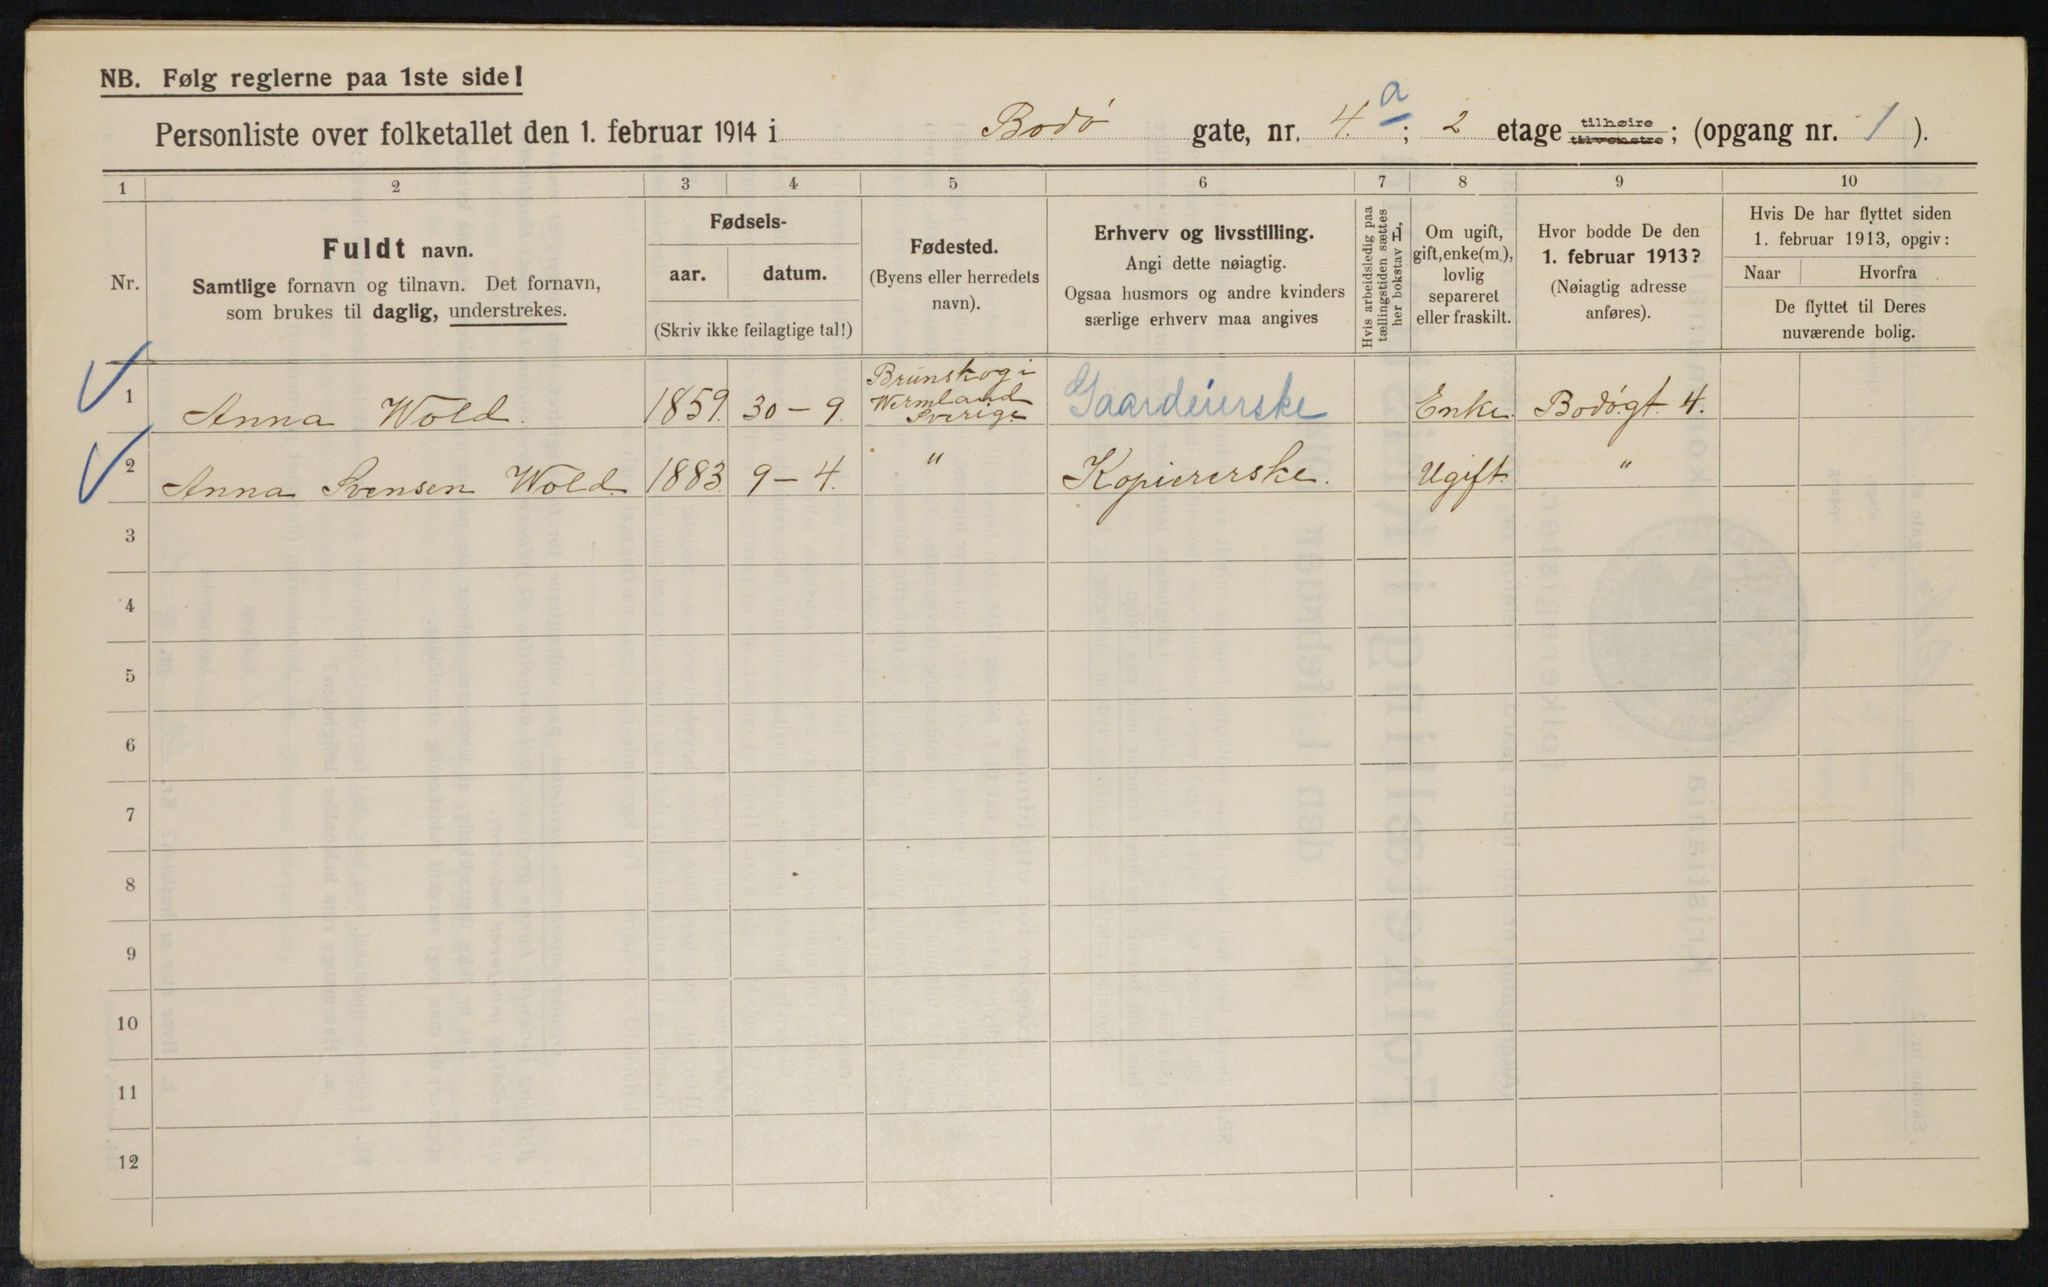 NB. Følg reglerne paa 1ste side!
Personliste over folketallet den 1. februar 1914 i Bodø gate, nr. 4. a ; 2 etage tilhøire tilvenstre ; (opgang nr. 1 ).
1 2 3 4 5 6 7 8 9 10
Nr.
Fuldt navn.
Samtlige fornavn og tilnavn. Det fornavn,
som brukes til daglig, understrekes.
Fødsels-
aar. datum.
(Skriv ikke feilagtige tal!)
Fødested.
(Byens eller herredets
navn).
Erhverv og livsstilling.
Angi dette nøiagtig.
Ogsaa husmors og andre kvinders
særlige erhverv maa angives
Hvis arbeidsledig paa
tællingstiden sættes
her bokstav L.
Om ugift,
gift, enke(m.),
lovlig
separeret
eller fraskilt.
Hvor bodde De den
1. februar 1913?
(Nøiagtig adresse
anføres).
Hvis De har flyttet siden
1. februar 1913, opgiv:
Naar Hvorfra
De flyttet til Deres
nuværende bolig.
1 Anna Wold. 1859. 30 – 9. Brunskog i Wermland Sverige Gaardeierske Enke. Bodøgt. 4.
2 Anna Svensen Wold. 1883. 9 – 4. " Kopiererske. Ugift. "
3
4
5
6
7
8
9
10
11
12